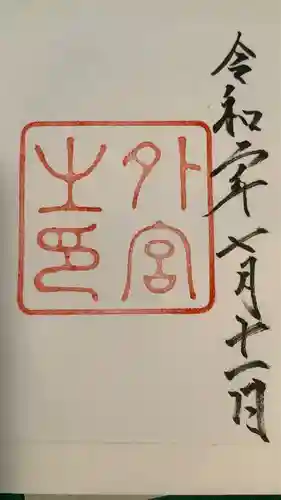 令和二年七月十一日
外宮
之印